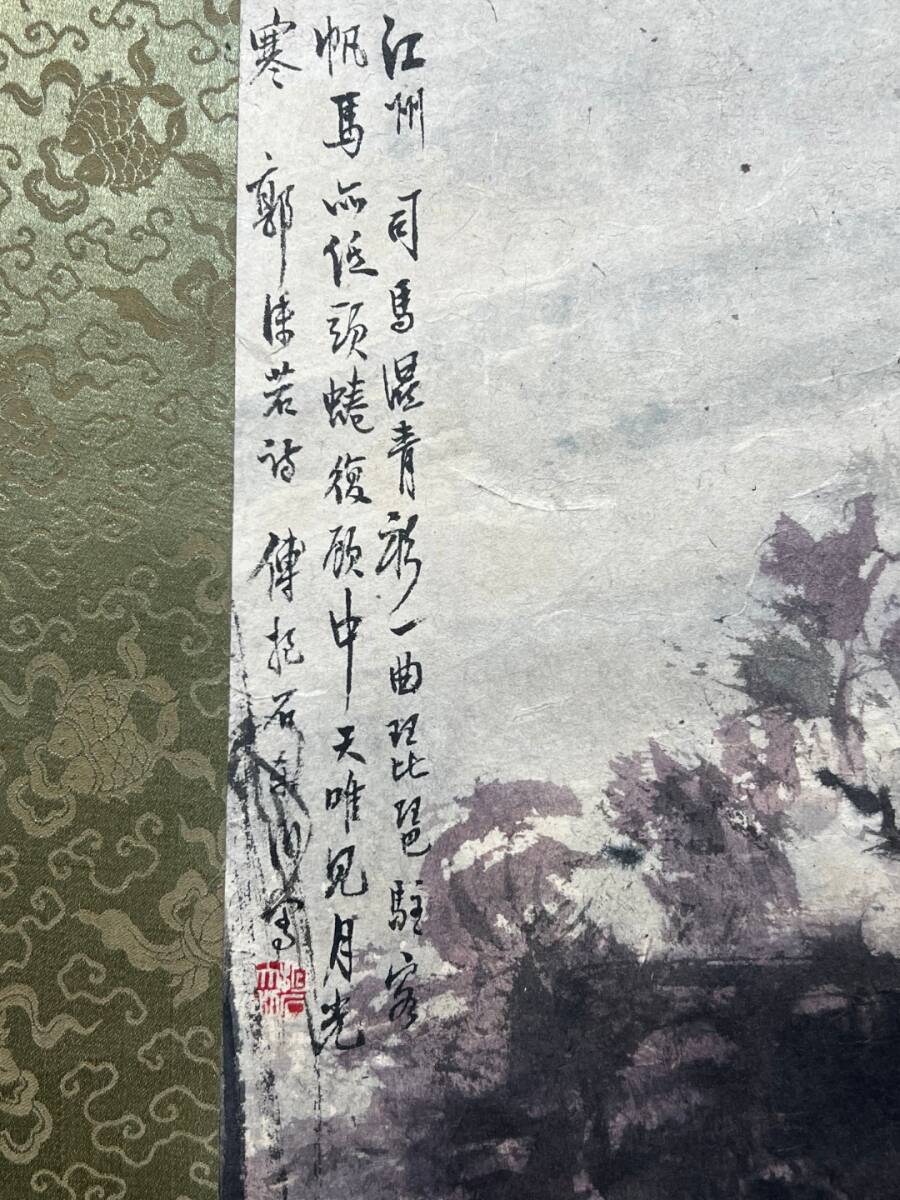 江州司馬濕青衫一曲琵琶駐客
帆馬亦低頭蜷復顧中天唯見月光
寒 郭沫若詩 傅抱石 寫